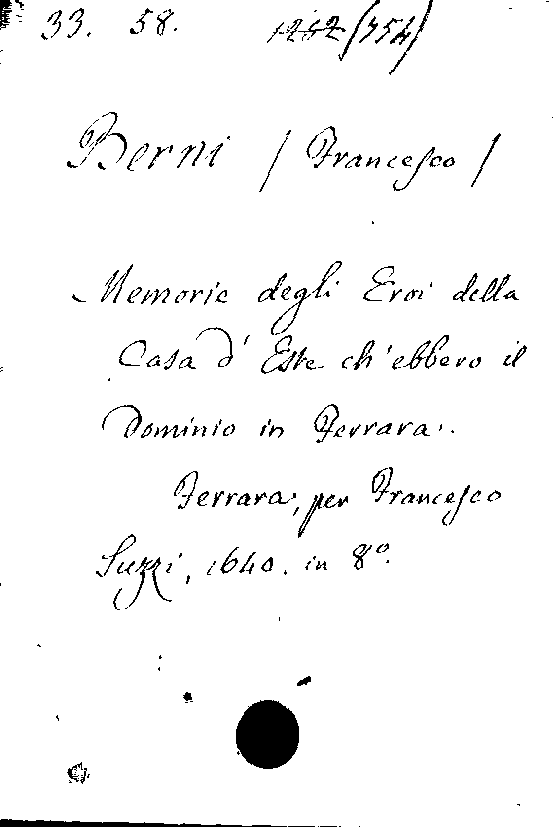 33. 58. 1212 (754)
Berni / Francesco /
Memorie degli Eroi della
Casa d' Este ch'ebbero il
Dominio in Ferrara.
Ferrara, per Francesco
Suzzi, 1640. in 8º.